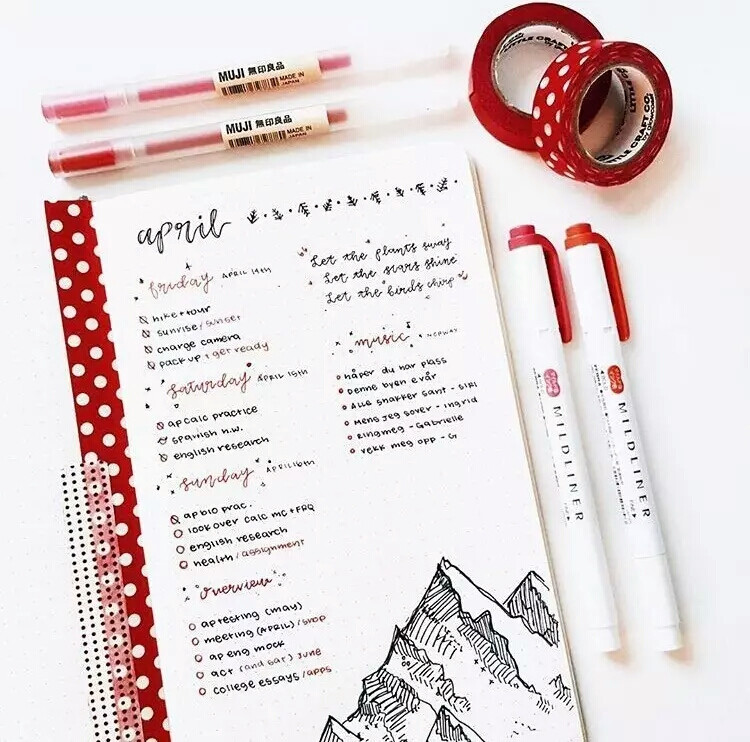 MUJI 無印良品
MADE IN
JAPAN
MUJI 無印良品
MADE IN
JAPAN
LITTLE CRAFT CO.
LITTLE CRAFT CO.
april
friday APRIL 14th
hike + tour
sunrise / sunset
charge camera
pack up + get ready
saturday APRIL 15th
ap calc practice
spanish h.w.
english research
sunday APRIL 16th
ap bio prac.
look over calc mc + FRQ
english research
health / assignment
overview
ap testing (may)
meeting (APRIL) / shop
ap eng mock
act (and sat) June
college essays / apps
Let the plants sway
Let the stars shine
Let the birds chirp
music NORWAY
håper du har plass
Denne byen er vår
Alle snakker sant - siri
Mens jeg sover - ingrid
Ring meg - Gabrielle
vekk meg opp - G
MILDLINER
MILDLINER